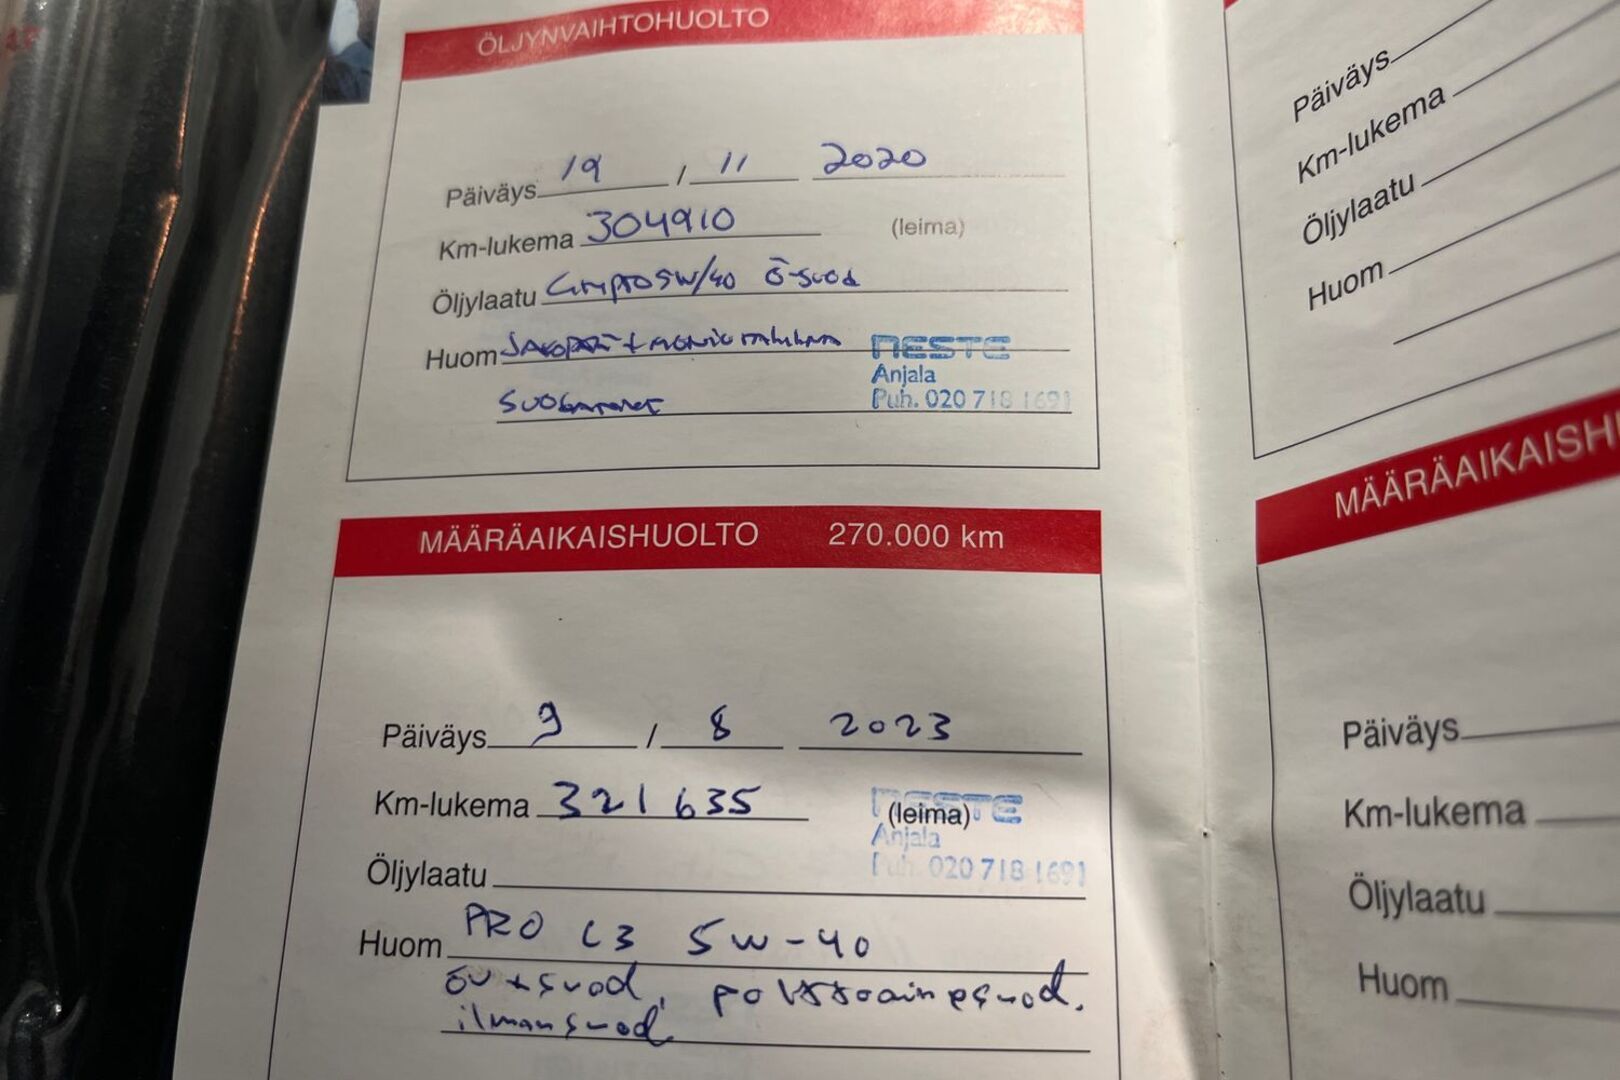 ÖLJYNVAIHTOHUOLTO
Päiväys 19 / 11 2020
Km-lukema 304910 (leima)
Öljylaatu 5W/40 Ö-suod
Huom + NESTE
Anjala
Puh. 020 718 1691
MÄÄRÄAIKAISHUOLTO 270.000 km
Päiväys 9 / 8 2023
Km-lukema 321635 (leima)
NESTE
Anjala
Puh. 020 718 1691
Öljylaatu
Huom PRO C3 5W-40
öv + suod, polttoainesuod.
ilmansuod
Päiväys
Km-lukema
Öljylaatu
Huom
MÄÄRÄAIKAISH
Päiväys
Km-lukema
Öljylaatu
Huom